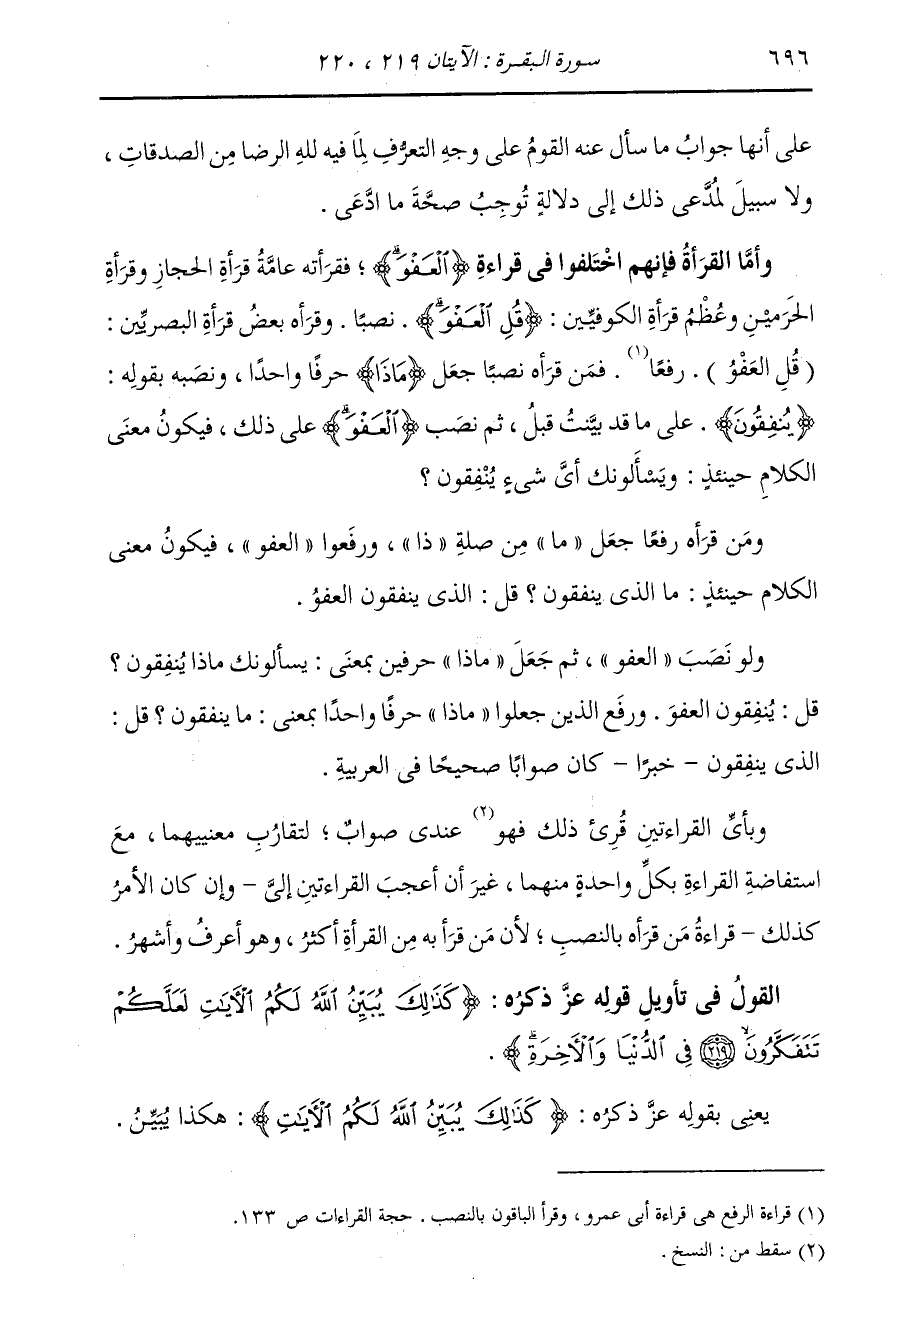 ٦٩٦
سورة البقرة : الآيتان ٢١٩ ، ٢٢٠
على أنها جوابُ ما سأل عنه القومُ على وجهِ التعرُّفِ لِمَا فيه للهِ الرضا مِن الصدقاتِ ،
ولا سبيلَ لمُدَّعى ذلك إلى دلالةٍ تُوجِبُ صحَّةَ ما ادَّعَى .
وأمَّا القرَأةُ فإنهم اخْتَلفوا فى قراءةِ ﴿ٱلْعَفْوَۗ﴾ ؛ فقرَأته عامَّةُ قرَأةِ الحجازِ وقرَأةِ
الحَرَميْنِ وعُظْمُ قرَأةِ الكوفيِّين : ﴿قُلِ ٱلْعَفْوَۗ﴾ . نصبًا . وقرأه بعضُ قرَأةِ البصريِّين :
( قُلِ العَفْوُ ) . رفعًا(١) . فمَن قرَأه نصبًا جعَل ﴿مَاذَا﴾ حرفًا واحدًا ، ونصَبه بقولِه :
﴿يُنفِقُونَ﴾ . على ما قد بيَّنتُ قبلُ ، ثم نصَب ﴿ٱلْعَفْوَۗ﴾ على ذلك ، فيكونُ معنى
الكلامِ حينئذٍ : ويَسْأَلونك أىَّ شىءٍ يُنْفِقون ؟
ومَن قرأه رفعًا جعَل « ما » مِن صلةِ « ذا » ، ورفَعوا « العفو » ، فيكونُ معنى
الكلام حينئذٍ : ما الذى ينفقون ؟ قل : الذى ينفقون العفوُ .
ولو نَصَبَ « العفو » ، ثم جَعَلَ « ماذا » حرفين بمعنَى : يسألونك ماذا يُنفِقون ؟
قل : يُنفِقون العفوَ . ورفَع الذين جعلوا « ماذا » حرفًا واحدًا بمعنى : ما ينفقون ؟ قل :
الذى ينفِقون – خبرًا – كان صوابًا صحيحًا فى العربيةِ .
وبأىِّ القراءتينِ قُرِئ ذلك فهو(٢) عندى صوابٌ ؛ لتقارُبِ معنييهما ، معَ
استفاضةِ القراءةِ بكلِّ واحدةٍ منهما ، غيرَ أن أعجبَ القراءتين إلىَّ – وإن كان الأمرُ
كذلك – قراءةُ مَن قرَأه بالنصبِ ؛ لأن مَن قرَأ به مِن القرأةِ أكثرُ ، وهو أعرفُ وأشهرُ .
القولُ فى تأويلِ قولِه عزَّ ذكرُه : ﴿كَذَٰلِكَ يُبَيِّنُ ٱللَّهُ لَكُمُ ٱلْآيَٰتِ لَعَلَّكُمْ
تَتَفَكَّرُونَۙ ٢١٩ فِى ٱلدُّنْيَا وَٱلْآخِرَةِۗ﴾ .
يعنِى بقولِه عزَّ ذكرُه : ﴿كَذَٰلِكَ يُبَيِّنُ ٱللَّهُ لَكُمُ ٱلْآيَٰتِ﴾ : هكذا يُبَيِّنُ .
(١) قراءة الرفع هى قراءة أبى عمرو ، وقرأ الباقون بالنصب . حجة القراءات ص ١٣٣.
(٢) سقط من : النسخ .